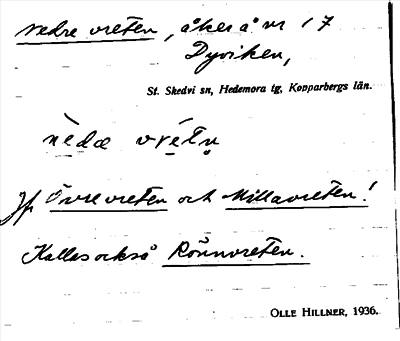 nedre vreten, åker å nr 17
Dyviken,
St. Skedvi sn, Hedemora tg, Kopparbergs län.
nèdæ vrétn
Jfr Övre vreten och Millavreten!
Kallas också Rönnvreten.
OLLE HILLNER, 1936.